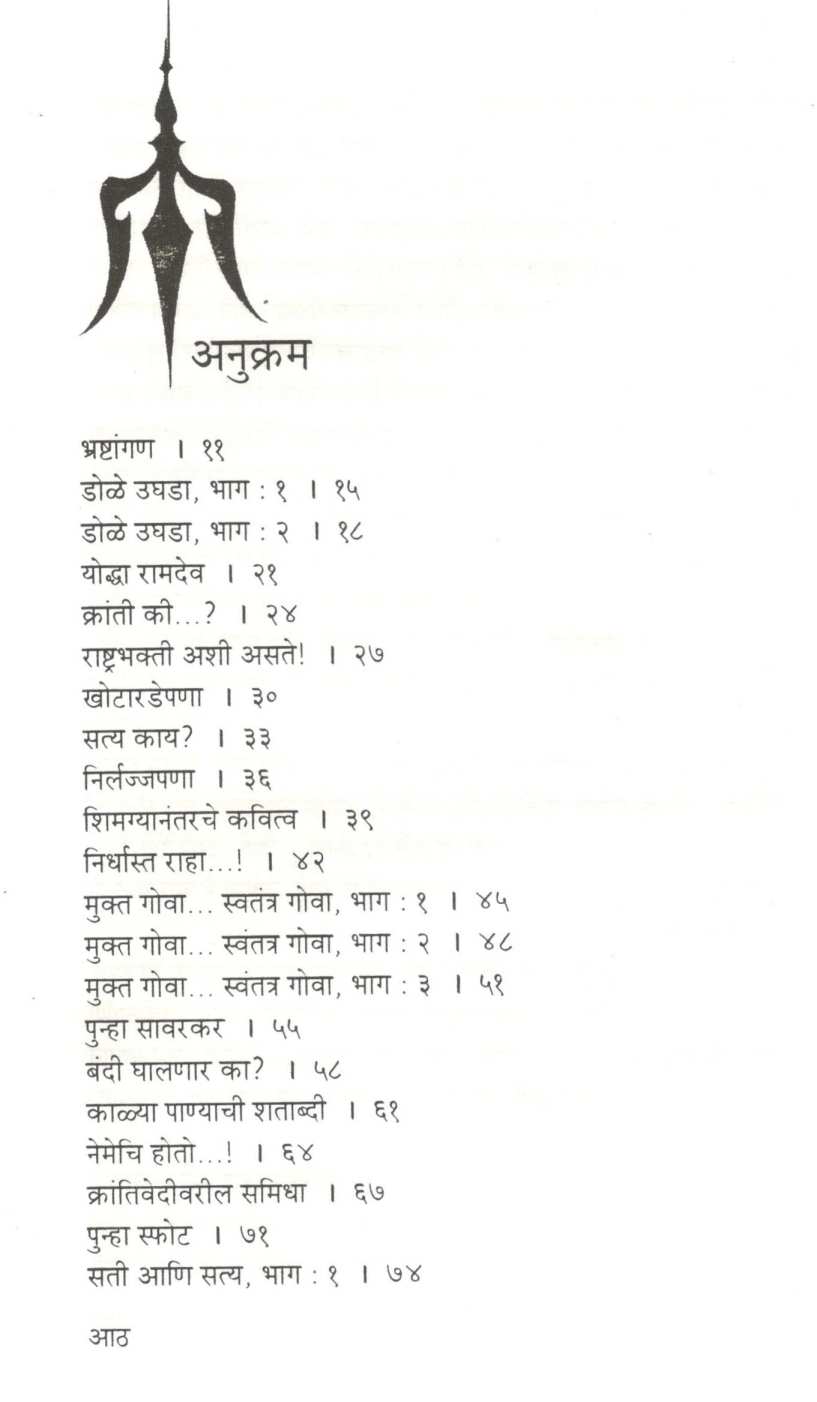 अनुक्रम
भ्रष्टांगण । ११
डोळे उघडा, भाग : १ । १५
डोळे उघडा, भाग : २ । १८
योद्धा रामदेव । २१
क्रांती की...? । २४
राष्ट्रभक्ती अशी असते! । २७
खोटारडेपणा । ३०
सत्य काय? । ३३
निर्लज्जपणा । ३६
शिमग्यानंतरचे कवित्व । ३९
निर्धास्त राहा...! । ४२
मुक्त गोवा... स्वतंत्र गोवा, भाग : १ । ४५
मुक्त गोवा... स्वंतत्र गोवा, भाग : २ । ४८
मुक्त गोवा... स्वंतत्र गोवा, भाग : ३ । ५१
पुन्हा सावरकर । ५५
बंदी घालणार का? । ५८
काळ्या पाण्याची शताब्दी । ६१
नेमेचि होतो...! । ६४
क्रांतिवेदीवरील समिधा । ६७
पुन्हा स्फोट । ७१
सती आणि सत्य, भाग : १ । ७४
आठ